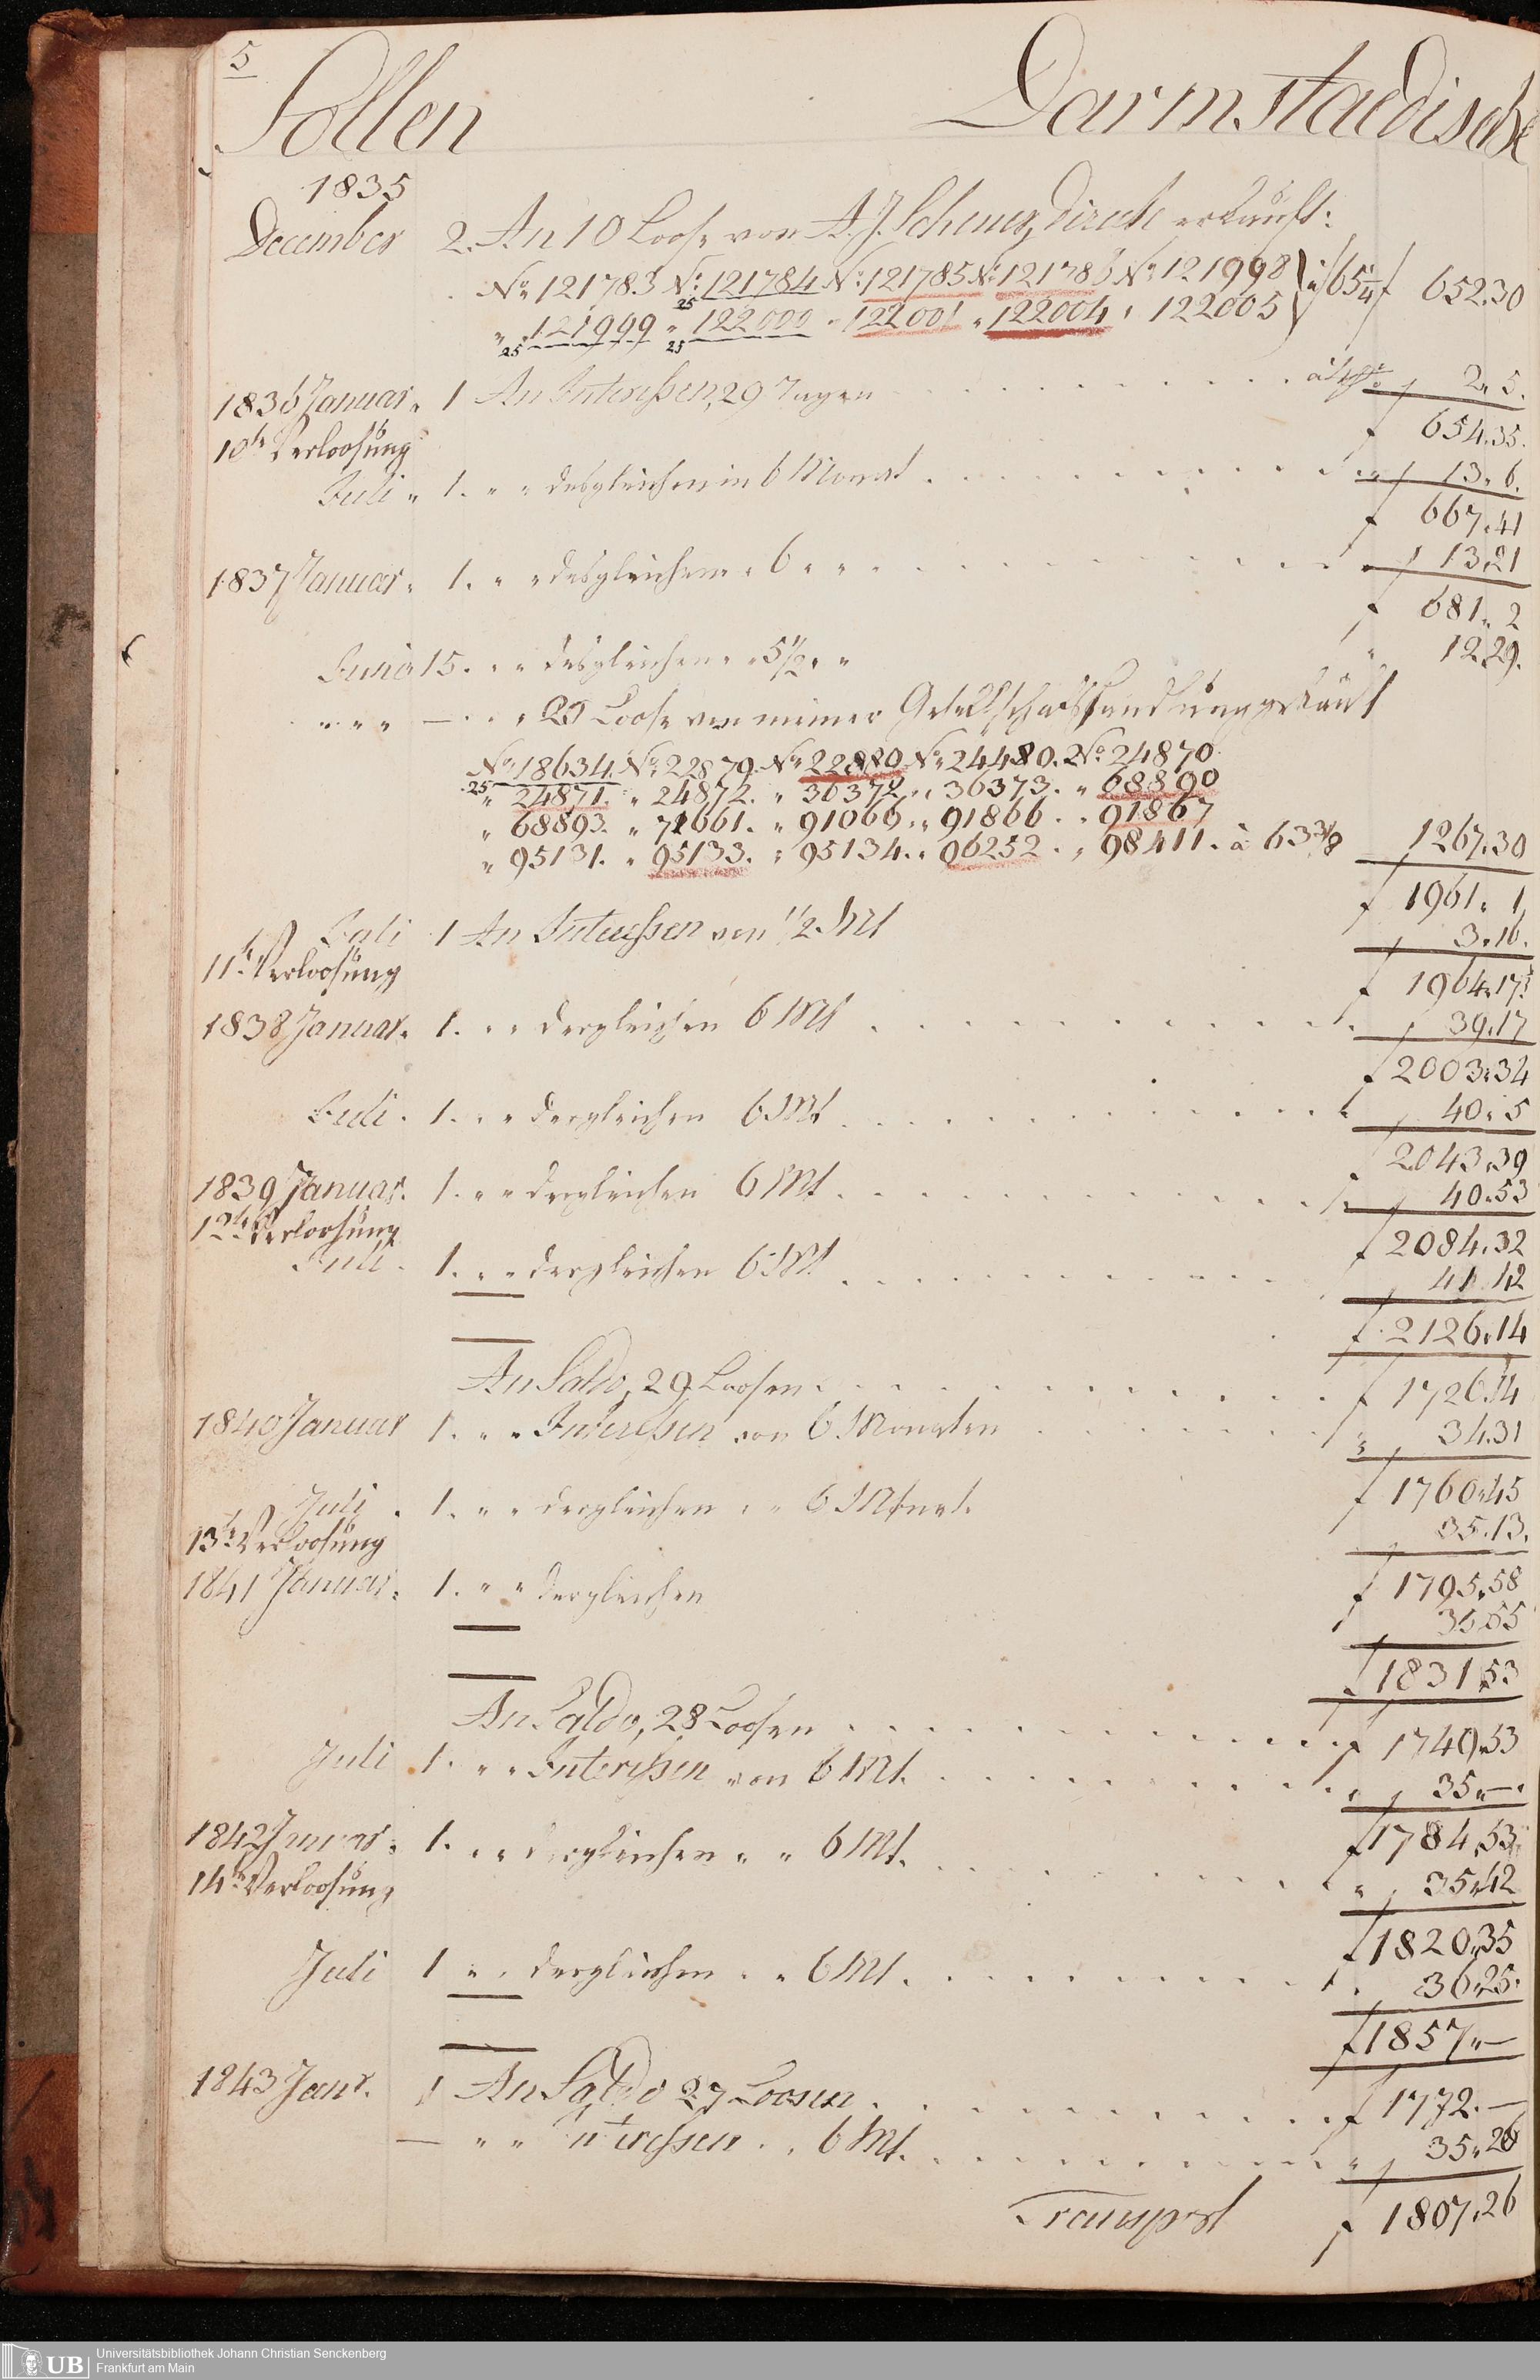 5
Sollen Darmstaedische
1835
December 2. An 10 Loose von A. J. Scheuer, directe erkauft:
No. 121783 No. 121784 No. 121785 No. 121786 No. 121998 à f 65 1/4 f 652.30
25
" 121999 " 122000 " 122001 " 122004 " 122005
25 25
1836 Januar " 1 An Interessen, 29 Tagen . . . . à 4 pCto f 2. 5.
f 654.35.
10te Verloosung
Juli " 1. " " desgleichen in 6 Monat . . . . " f 13. 6.
f 667.41
1837 Januar " 1. " " desgleichen " 6 " " . . . . f 13.21
f 681. 2
Junio 15. " " desgleichen " 5 1/2 " " " 12.29.
" " " — " " 20 Loose von meiner Gesellschaftshandlung gekauft
No. 18634. No. 22879. No. 22880 No. 24480. No. 24870.
25
" 24871. " 24872. " 36372. " 36373. " 68890
" 68893. " 71661. " 91066. " 91866. " 91867
" 95131. " 95133. " 95134. " 96252. " 98411. à 63 3/8 1267.30
f 1961. 1
Juli 1 An Interessen von 1/2 Mt 3.16.
11te Verloosung
f 1964.17
1838 Januar. 1. " " dergleichen 6 Mt . . . . f 39.17
f 2003.34
Juli. 1. " " dergleichen 6 Mt . . . . f 40. 5
2043.39
1839 Januar. 1. " " dergleichen 6 Mt . . . . f 40.53
12te Verloosung
f 2084.32
Juli. 1. " " dergleichen 6 Mt . . . . 41.42
f 2126.14
An Saldo, 29 Loosen . . . . f 1726.14
1840 Januar 1. " " Interessen von 6 Monaten . . . . " f 34.31
f 1760.45
Juli. 1. " " dergleichen " " 6 Monat.
35.13.
13te Verloosung
1841 Januar. 1. " " dergleichen f 1795.58
35.55
f 1831.53
An Saldo, 28 Loosen . . . . f 1749.53
Juli 1. " " Interessen von 6 Mt. . . . . " f 35.—.
f 1784.53
1842 Januar. 1. " " dergleichen " " 6 Mt. . . . . " f 35.42
14te Verloosung
f 1820.35
Juli 1 " " dergleichen " " 6 Mt. . . . . 36.25.
f 1857.—
1843 Janr. 1 An Saldo 27 Loosen . . . . f 1772.—
— " " Interessen " " 6 Mt. . . . . " f 35.26
Transport f 1807.26
UB Universitätsbibliothek Johann Christian Senckenberg
Frankfurt am Main